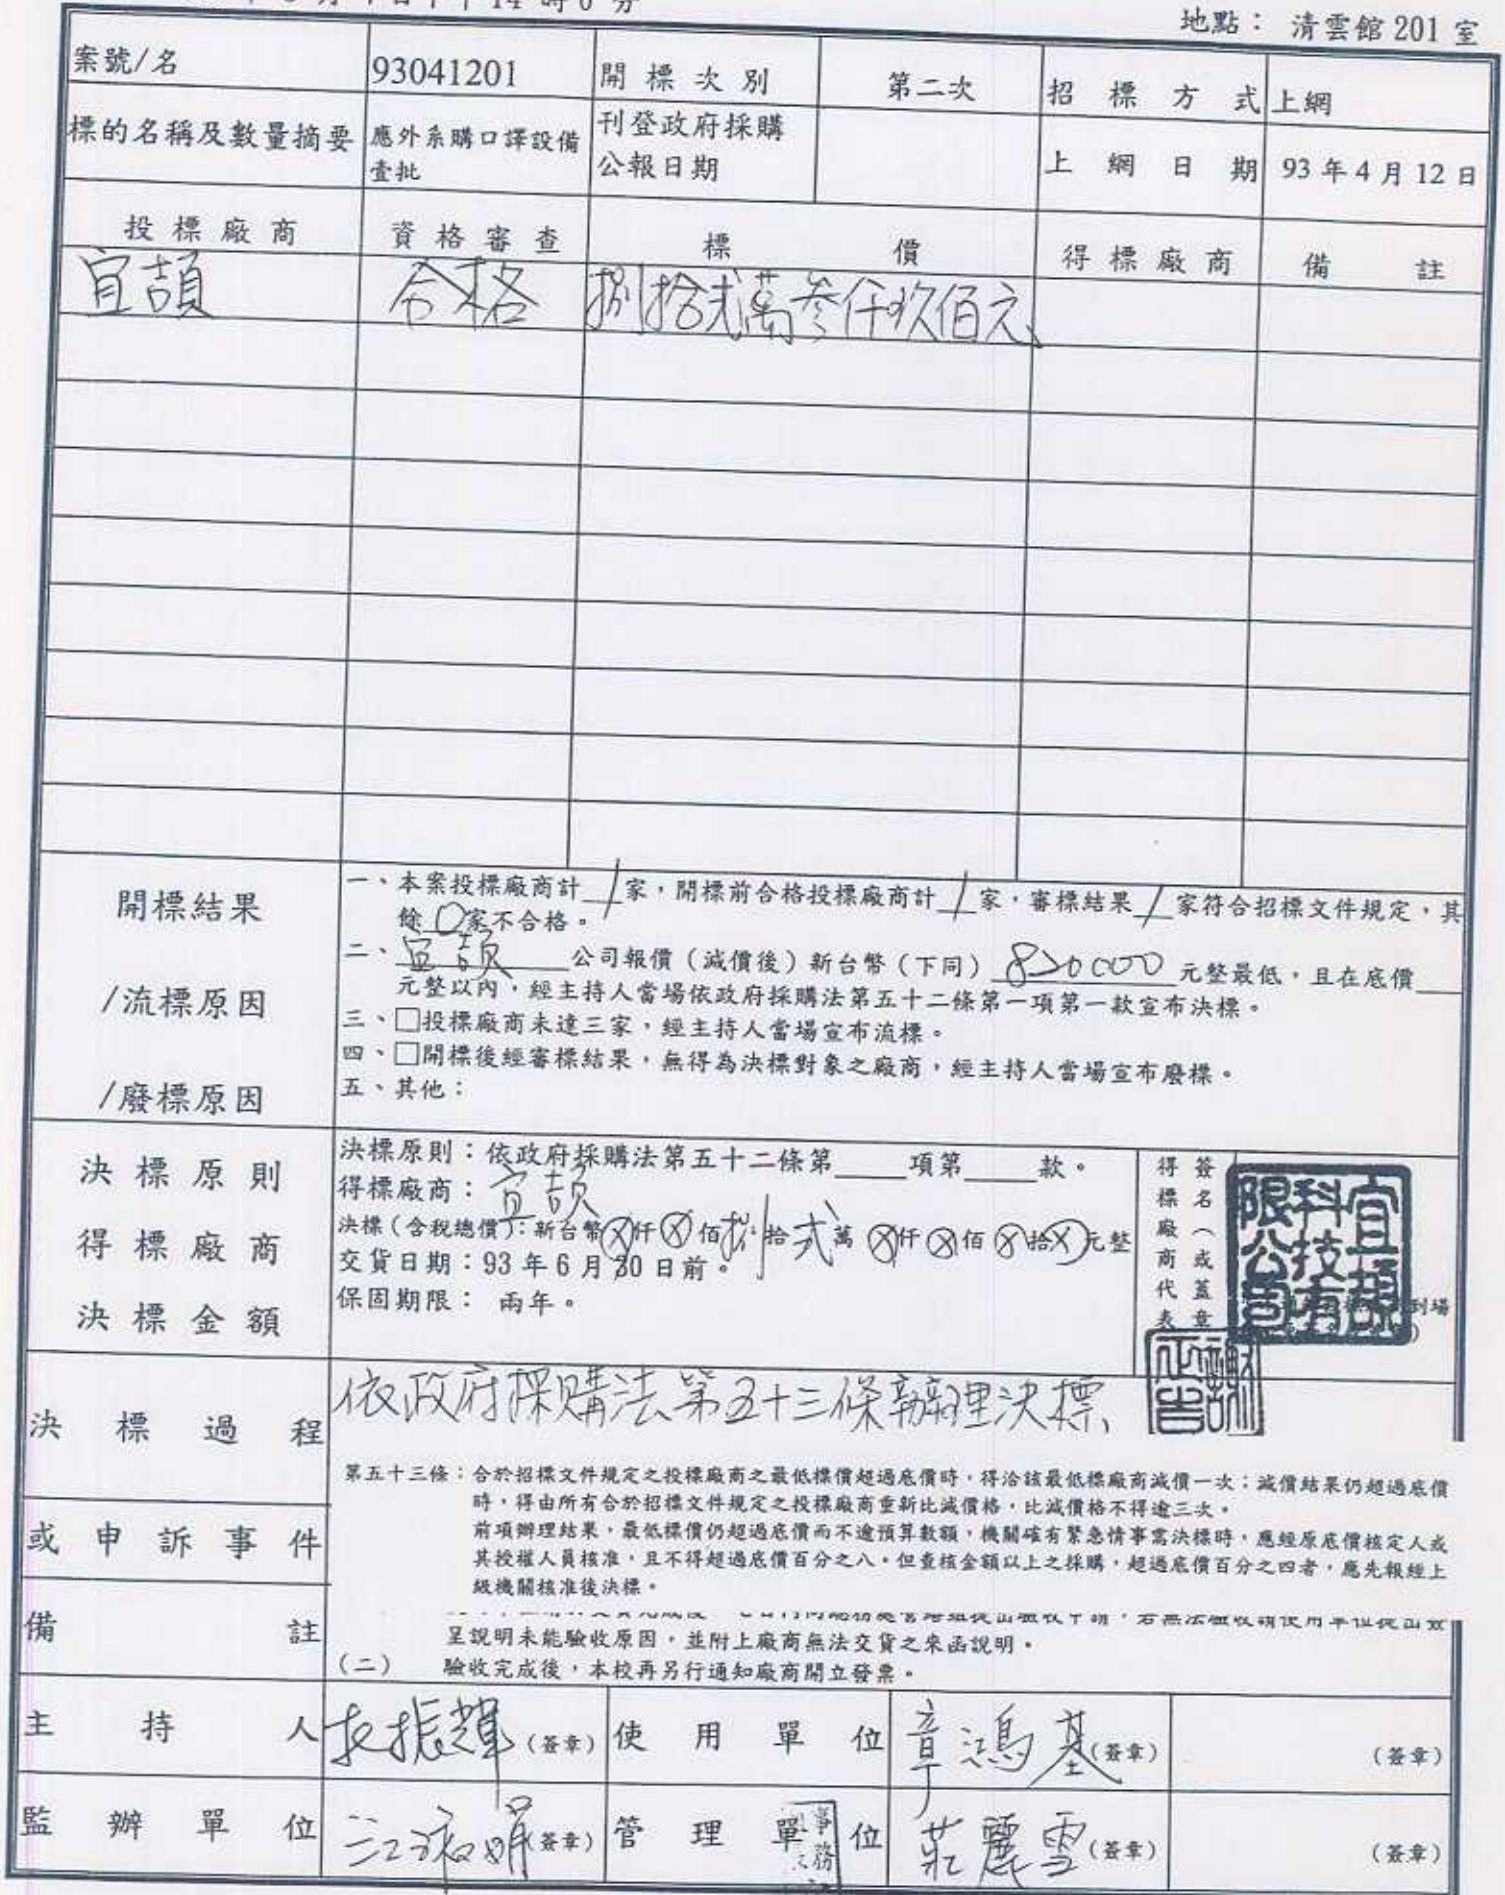 月 日下午14時0分
地點： 清雲館 201 室
案號/名 93041201 開標次別 第二次 招標方式 上網
標的名稱及數量摘要 應外系購口譯設備壹批 刊登政府採購公報日期 上網日期 93 年 4 月 12 日
投標廠商 資格審查 標價 得標廠商 備註
宜頡 合格 捌拾弍萬叁仟玖佰元
開標結果
/流標原因
/廢標原因
一、本案投標廠商計 1 家，開標前合格投標廠商計 1 家，審標結果 1 家符合招標文件規定，其
餘 0 家不合格。
二、宜頡 公司報價（減價後）新台幣（下同）820000 元整最低，且在底價
元整以內，經主持人當場依政府採購法第五十二條第一項第一款宣布決標。
三、□投標廠商未達三家，經主持人當場宣布流標。
四、□開標後經審標結果，無得為決標對象之廠商，經主持人當場宣布廢標。
五、其他：
決標原則
得標廠商
決標金額
決標原則：依政府採購法第五十二條第 項第 款。
得標廠商：宜頡
決標(含稅總價)：新台幣Ⓧ仟Ⓧ佰捌拾弍萬Ⓧ仟Ⓧ佰Ⓧ拾Ⓧ元整
交貨日期：93 年 6 月 30 日前。
保固期限： 兩年。
得標廠商代表
簽名（或蓋章
宜頡科技有限公司
到場
決標過程
依政府採購法第五十三條辦理決標
第五十三條：合於招標文件規定之投標廠商之最低標價超過底價時，得洽該最低標廠商減價一次；減價結果仍超過底價
時，得由所有合於招標文件規定之投標廠商重新比減價格，比減價格不得逾三次。
前項辦理結果，最低標價仍超過底價而不逾預算數額，機關確有緊急情事需決標時，應經原底價核定人或
其授權人員核准，且不得超過底價百分之八。但查核金額以上之採購，超過底價百分之四者，應先報經上
級機關核准後決標。
或申訴事件
備註
呈說明未能驗收原因，並附上廠商無法交貨之來函說明。
(二) 驗收完成後，本校再另行通知廠商開立發票。
主持人 振輝 (簽章) 使用單位 章鴻基 (簽章) (簽章)
監辦單位 江淑娟 (簽章) 管理單位 事務 莊麗雪 (簽章) (簽章)